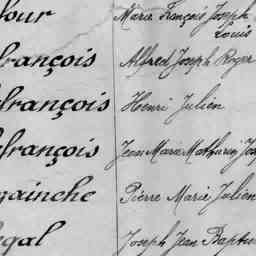 four Marie François Joseph
Louis
françois Alfred Joseph Roger
françois Henri Julien
françois Jean Marie Mathurin Jos
gainche Pierre Marie Julien
egal Joseph Jean Baptis